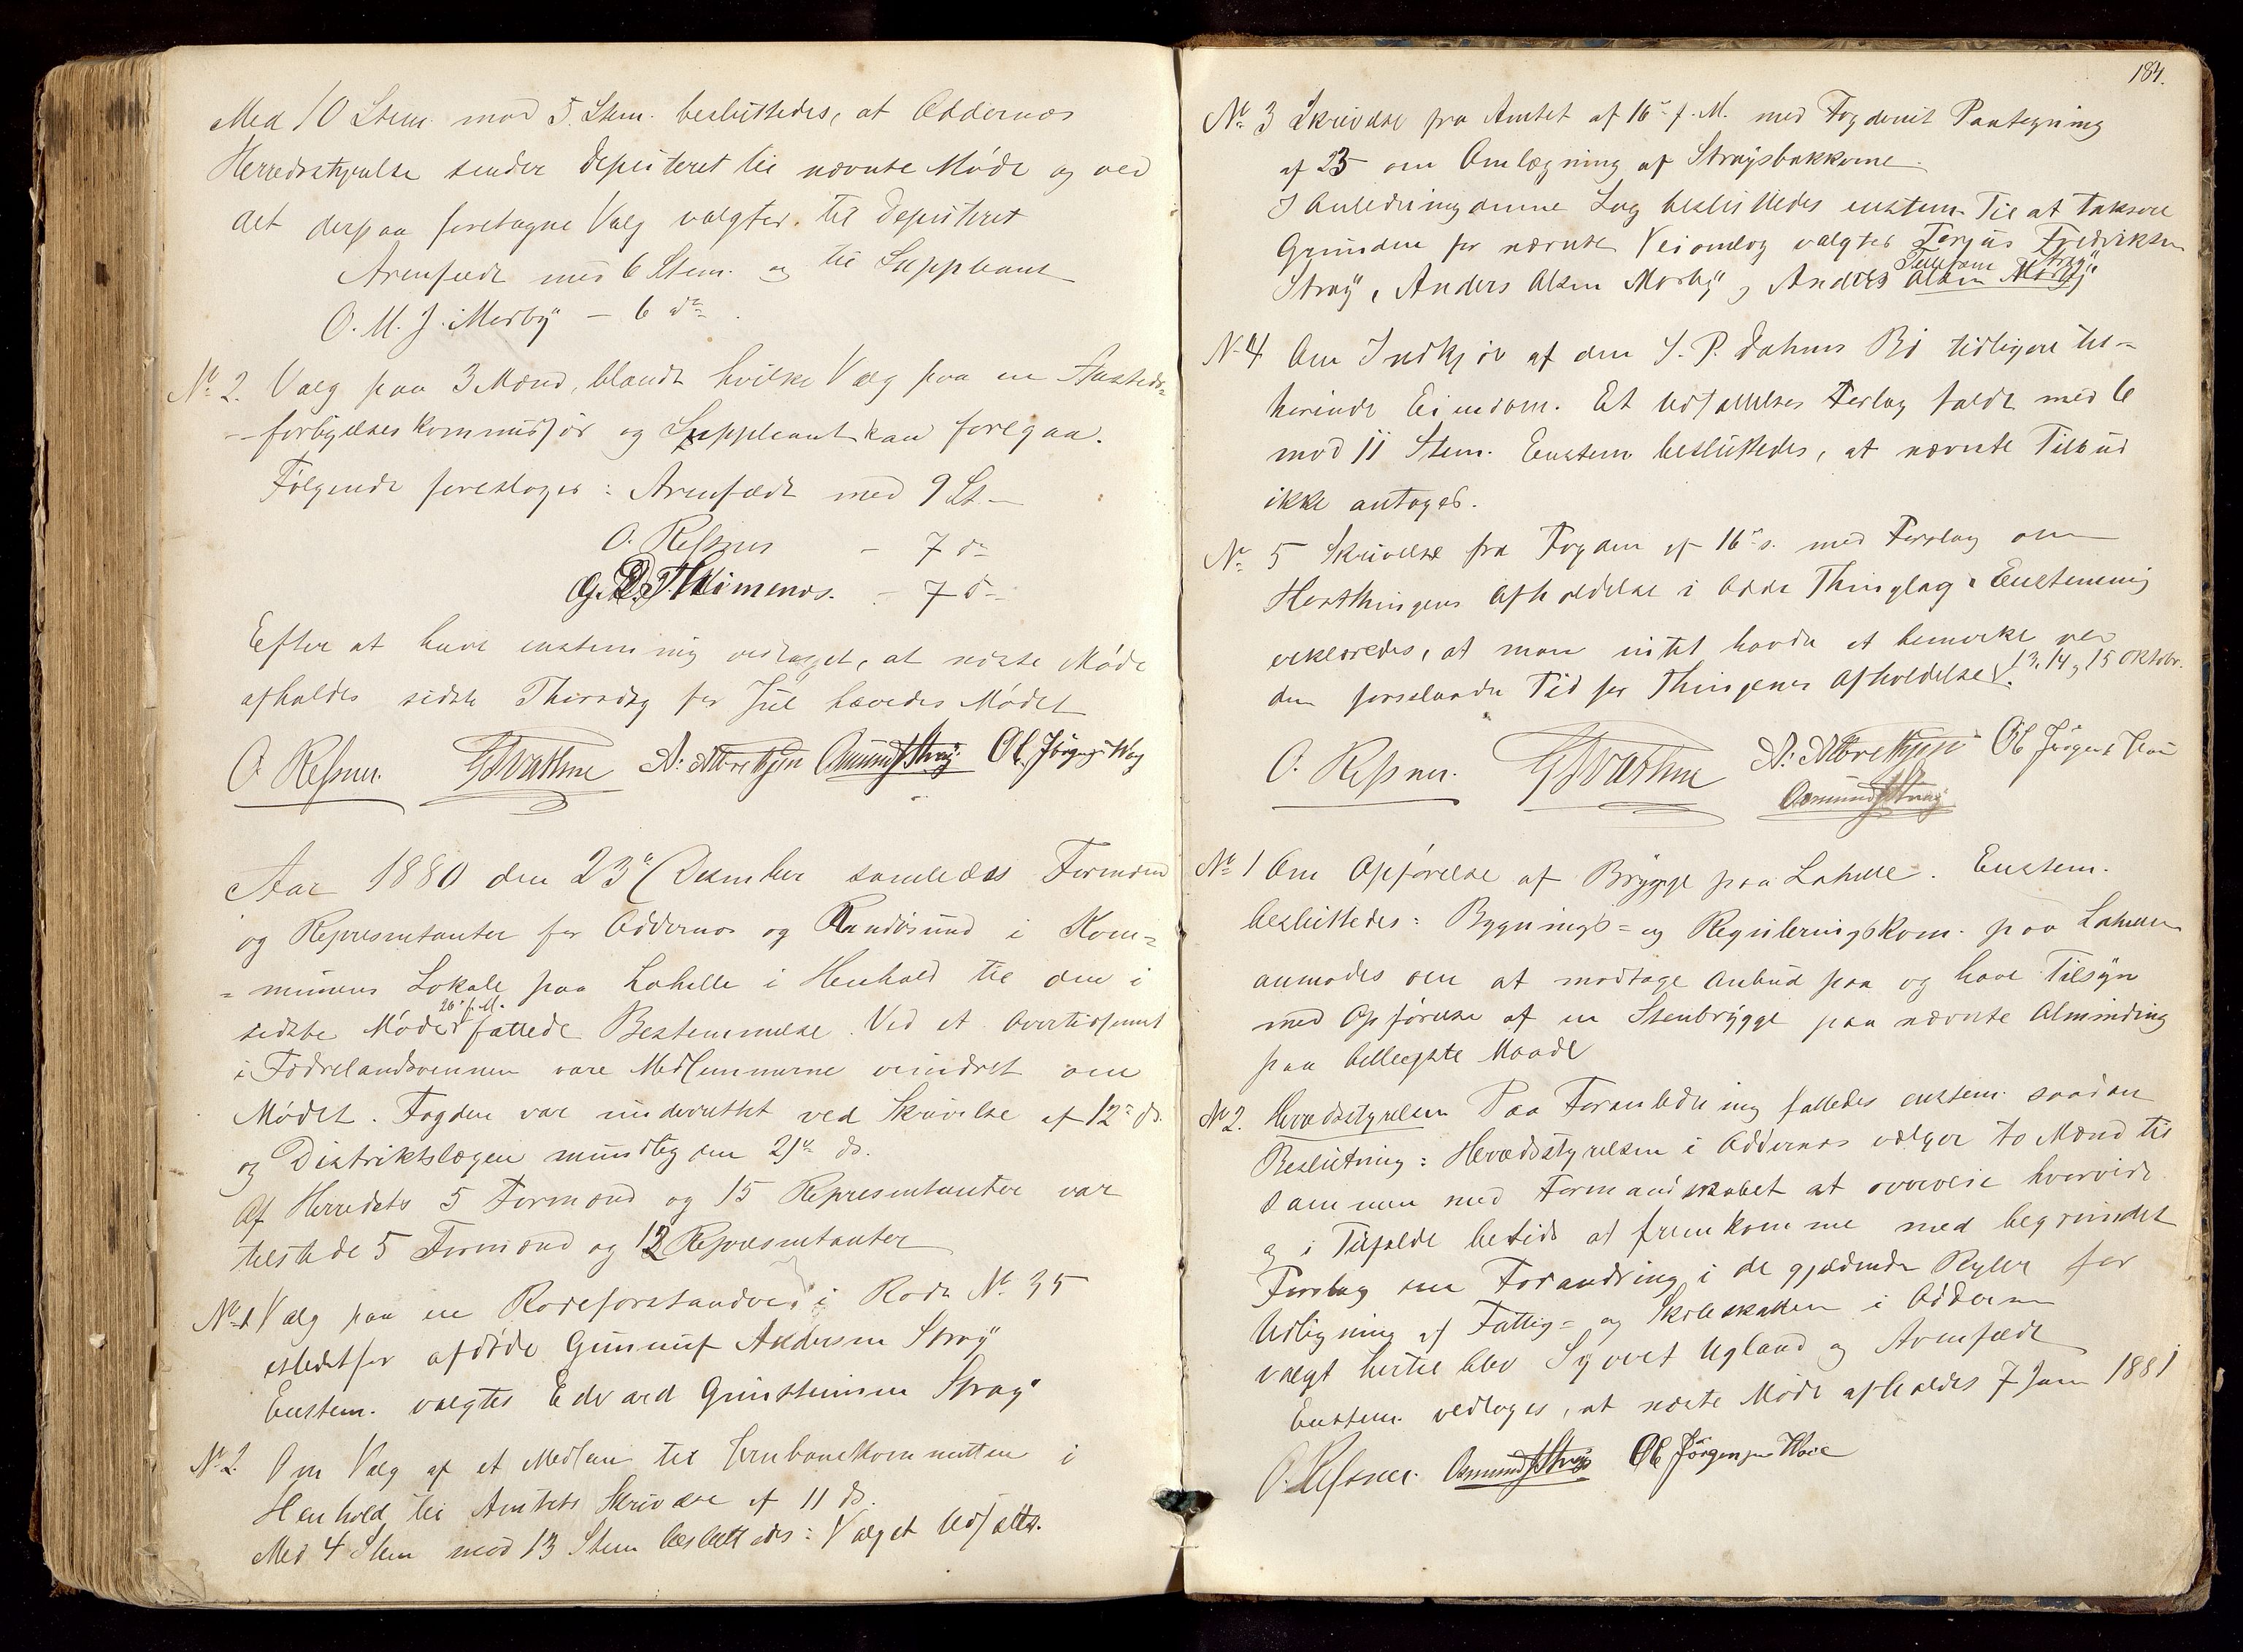 Med 10 Stem. mod 5 Stem. besluttedes, at Oddernes
Herredsstyrelse sender Deputeret til nævnte Møde og ved
det derpaa foretagne Valg valgtes til Deputeret
Arenfeldt med 6 Stem. og til Suppleant
O. M. J. Mosby – 6 do
No 2. Valg paa 3 Mænd, blandt hvilke Valg paa en
forligelseskommissær og Suppleant kan foregaa.
Følgende foresloges: Arenfeldt med 9 St.
O. Reʃsner – 7 do
– 7 do
Efter at have enstemmig vedtaget, at næste Møde
afholdes sidste Thorsdag før Jul hævedes Mødet
O. Reʃsner. Osmund Stray Ole Jörgensen
Aar 1880 den 23de Desember samledes Formænd
og Representanter for Oddernes og Randøsund i Kom=
=munens Lokale paa Lahelle i Henhold til den i
26de f. M.
sidste Møde fattede Bestemmelse. Ved et Avertissement
i Fædrelandsvennen vare Medlemmerne erindret om
Mødet. Fogden var underrettet ved Skrivelse af 12te ds.
og Distriktslægen mundtlig den 21de ds.
Af Herredets 5 Formænd og 15 Representanter var
tilstede 5 Formænd og 12 Representanter
No 1 Valg paa en Rodeforstander i Rode No 35
istedetfor afdøde Gunnuf Andersen Stray
Enstem. valgtes Edvard Gunsteinsen Stray
No 2. Om Valg af et Medlem til Jernbanekommitteen i
Henhold til Amtets Skrivelse af 11 ds.
Med 4 Stem mod 13 Stem besluttedes: Valget udsættes.
184.
No 3 Skrivelse fra Amtet af 16de f. M. med Fogdens Paategning
af 25 om Omlægning af Straysbakkerne.
I Anledning denne Sag besluttedes enstem. Til at taksere
Grunden for nævnte Veiomlæg valgtes Terjus Fredriksen
Tellefsen Stray
Stray, Anders Olsen Mosby og Anders Olsen Mosby
No 4 Om Indkjøb af den S. P. Dahms Bo tidligere til=
hørende Eiendom. Et Udsættelses Forslag faldt med 6
mod 11 Stem. Enstem besluttedes, at nævnte Tilbud
ikke antoges.
No 5 Skrivelse fra Fogden af 16de ds. med Forslag om
Høstthingenes Afholdelse i Odde Thinglag. Enstemmig
erklæredes, at man intet havde at bemærke ved
den foreslaaede Tid for Thingenes Afholdelse 13, 14 og 15 Oktobr.
O. Reʃsner. Ole Jörgensen
Osmund Stray
No 1 Om Opførelse af Brygge paa Lahelle. Enstem.
besluttedes: Bygnings= og Reguleringskom. paa Lahelle
anmodes om at modtage Anbud paa og have Tilsyn
med Opførelse af en Stenbrygge paa nævnte Alminding
paa billigste Maade
No 2. Herredsstyrelsen Paa Foranledning fattedes enstem. saadan
Beslutning: Herredsstyrelsen i Oddernes vælger to Mænd til
sammen med Formandskabet at overveie hvorvidt
og i Tilfælde betids at fremkomme med begrundet
Forslag om Forandring i de gjældende Regler for
Udligning af Fattig= og Skoleskatten i Oddernes
valgt hertil blev Syvert Ugland og Arenfeldt
Enstem. vedtoges, at næste Møde afholdes 7 Janu 1881
O. Reʃsner. Osmund Stray Ole Jörgensen